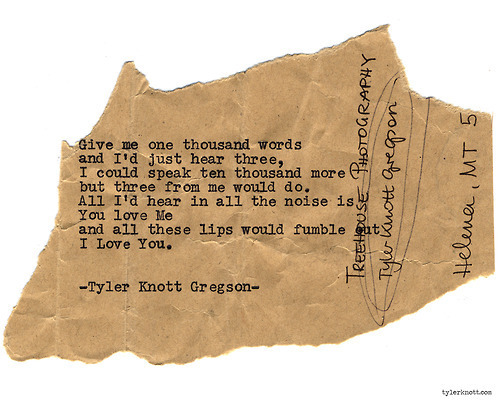 Give me one thousand words
and I'd just hear three,
I could speak ten thousand more
but three from me would do.
All I'd hear in all the noise is
You love Me
and all these lips would fumble out
I Love You.
-Tyler Knott Gregson-
TREEHOUSE PHOTOGRAPHY
Tyler Knott Gregson
Helena, MT 5
tylerknott.com